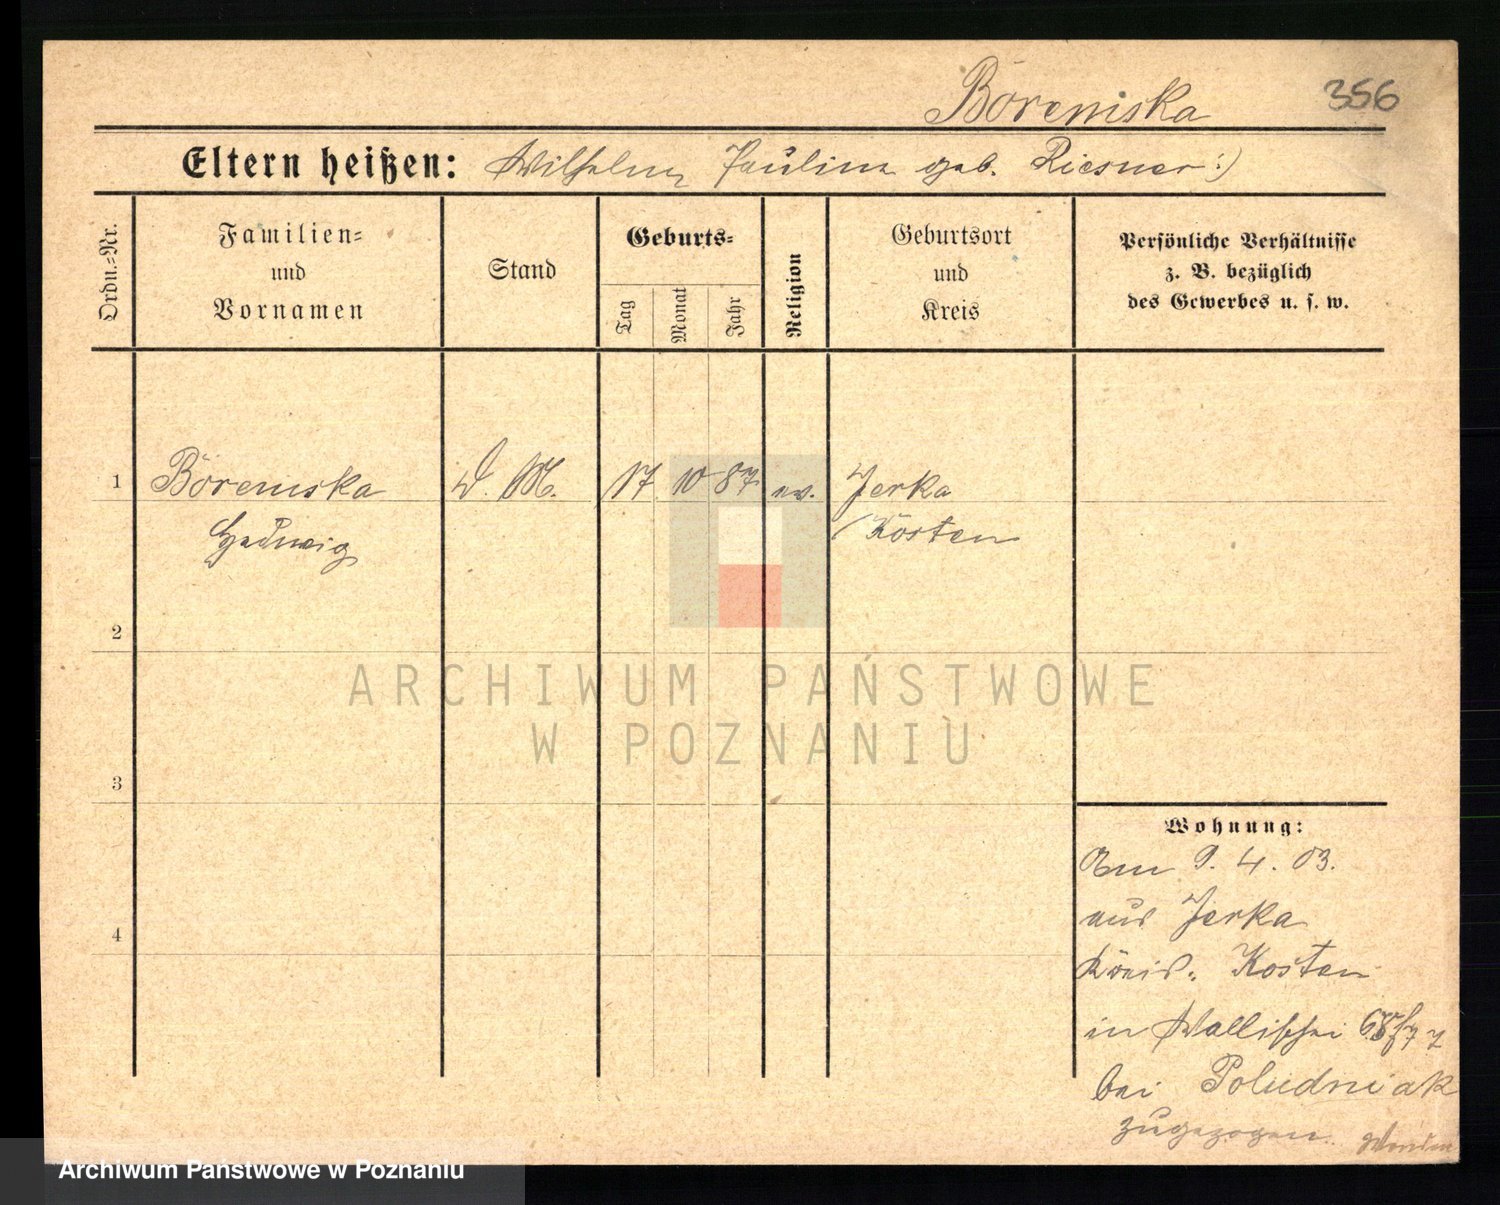 Boremska 356
Eltern heißen: Wilhelm Pauline geb. Riesner :)
Ordn.-Nr.
Familien-
und
Vornamen
Stand
Geburts-
Tag
Monat
Jahr
Religion
Geburtsort
und
Kreis
Persönliche Verhältnisse
z. B. bezüglich
des Gewerbes u. s. w.
1 Boremska D. M. 17 10 87 ev. Jerka
Hedwig Kosten
2
ARCHIWUM PAŃSTWOWE
W POZNANIU
3
Wohnung:
Am 9. 4. 03.
aus Jerka
4
Kreis: Kosten
in Wallischei 68
bei Poludniak
zugezogen. Wenden
Archiwum Państwowe w Poznaniu